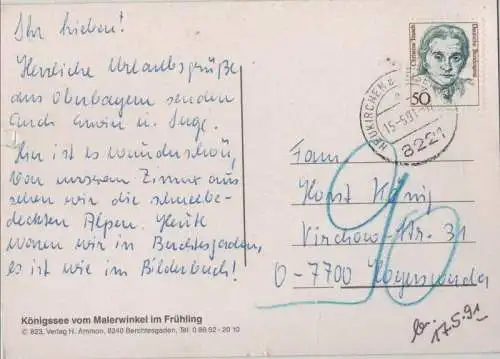 Ihr Lieben!
Herzliche Urlaubsgrüße
aus Oberbayern senden
Euch Erwin u. Inge.
Hier ist es wunderschön,
von unserem Zimmer aus
sehen wir die schneebe-
deckten Alpen. Heute
waren wir in Berchtesgaden,
es ist wie im Bilderbuch!
Königssee vom Malerwinkel im Frühling
© 823, Verlag H. Ammon, 8240 Berchtesgaden, Tel. 0 86 52 - 20 10
Christine Teusch
Deutsche Bundespost
50
NEUKIRCHEN
15-5.91
8221
Fam.
Horst König
Virchow Str. 31
O-7700 Hoyerswerda
90
17.5.91